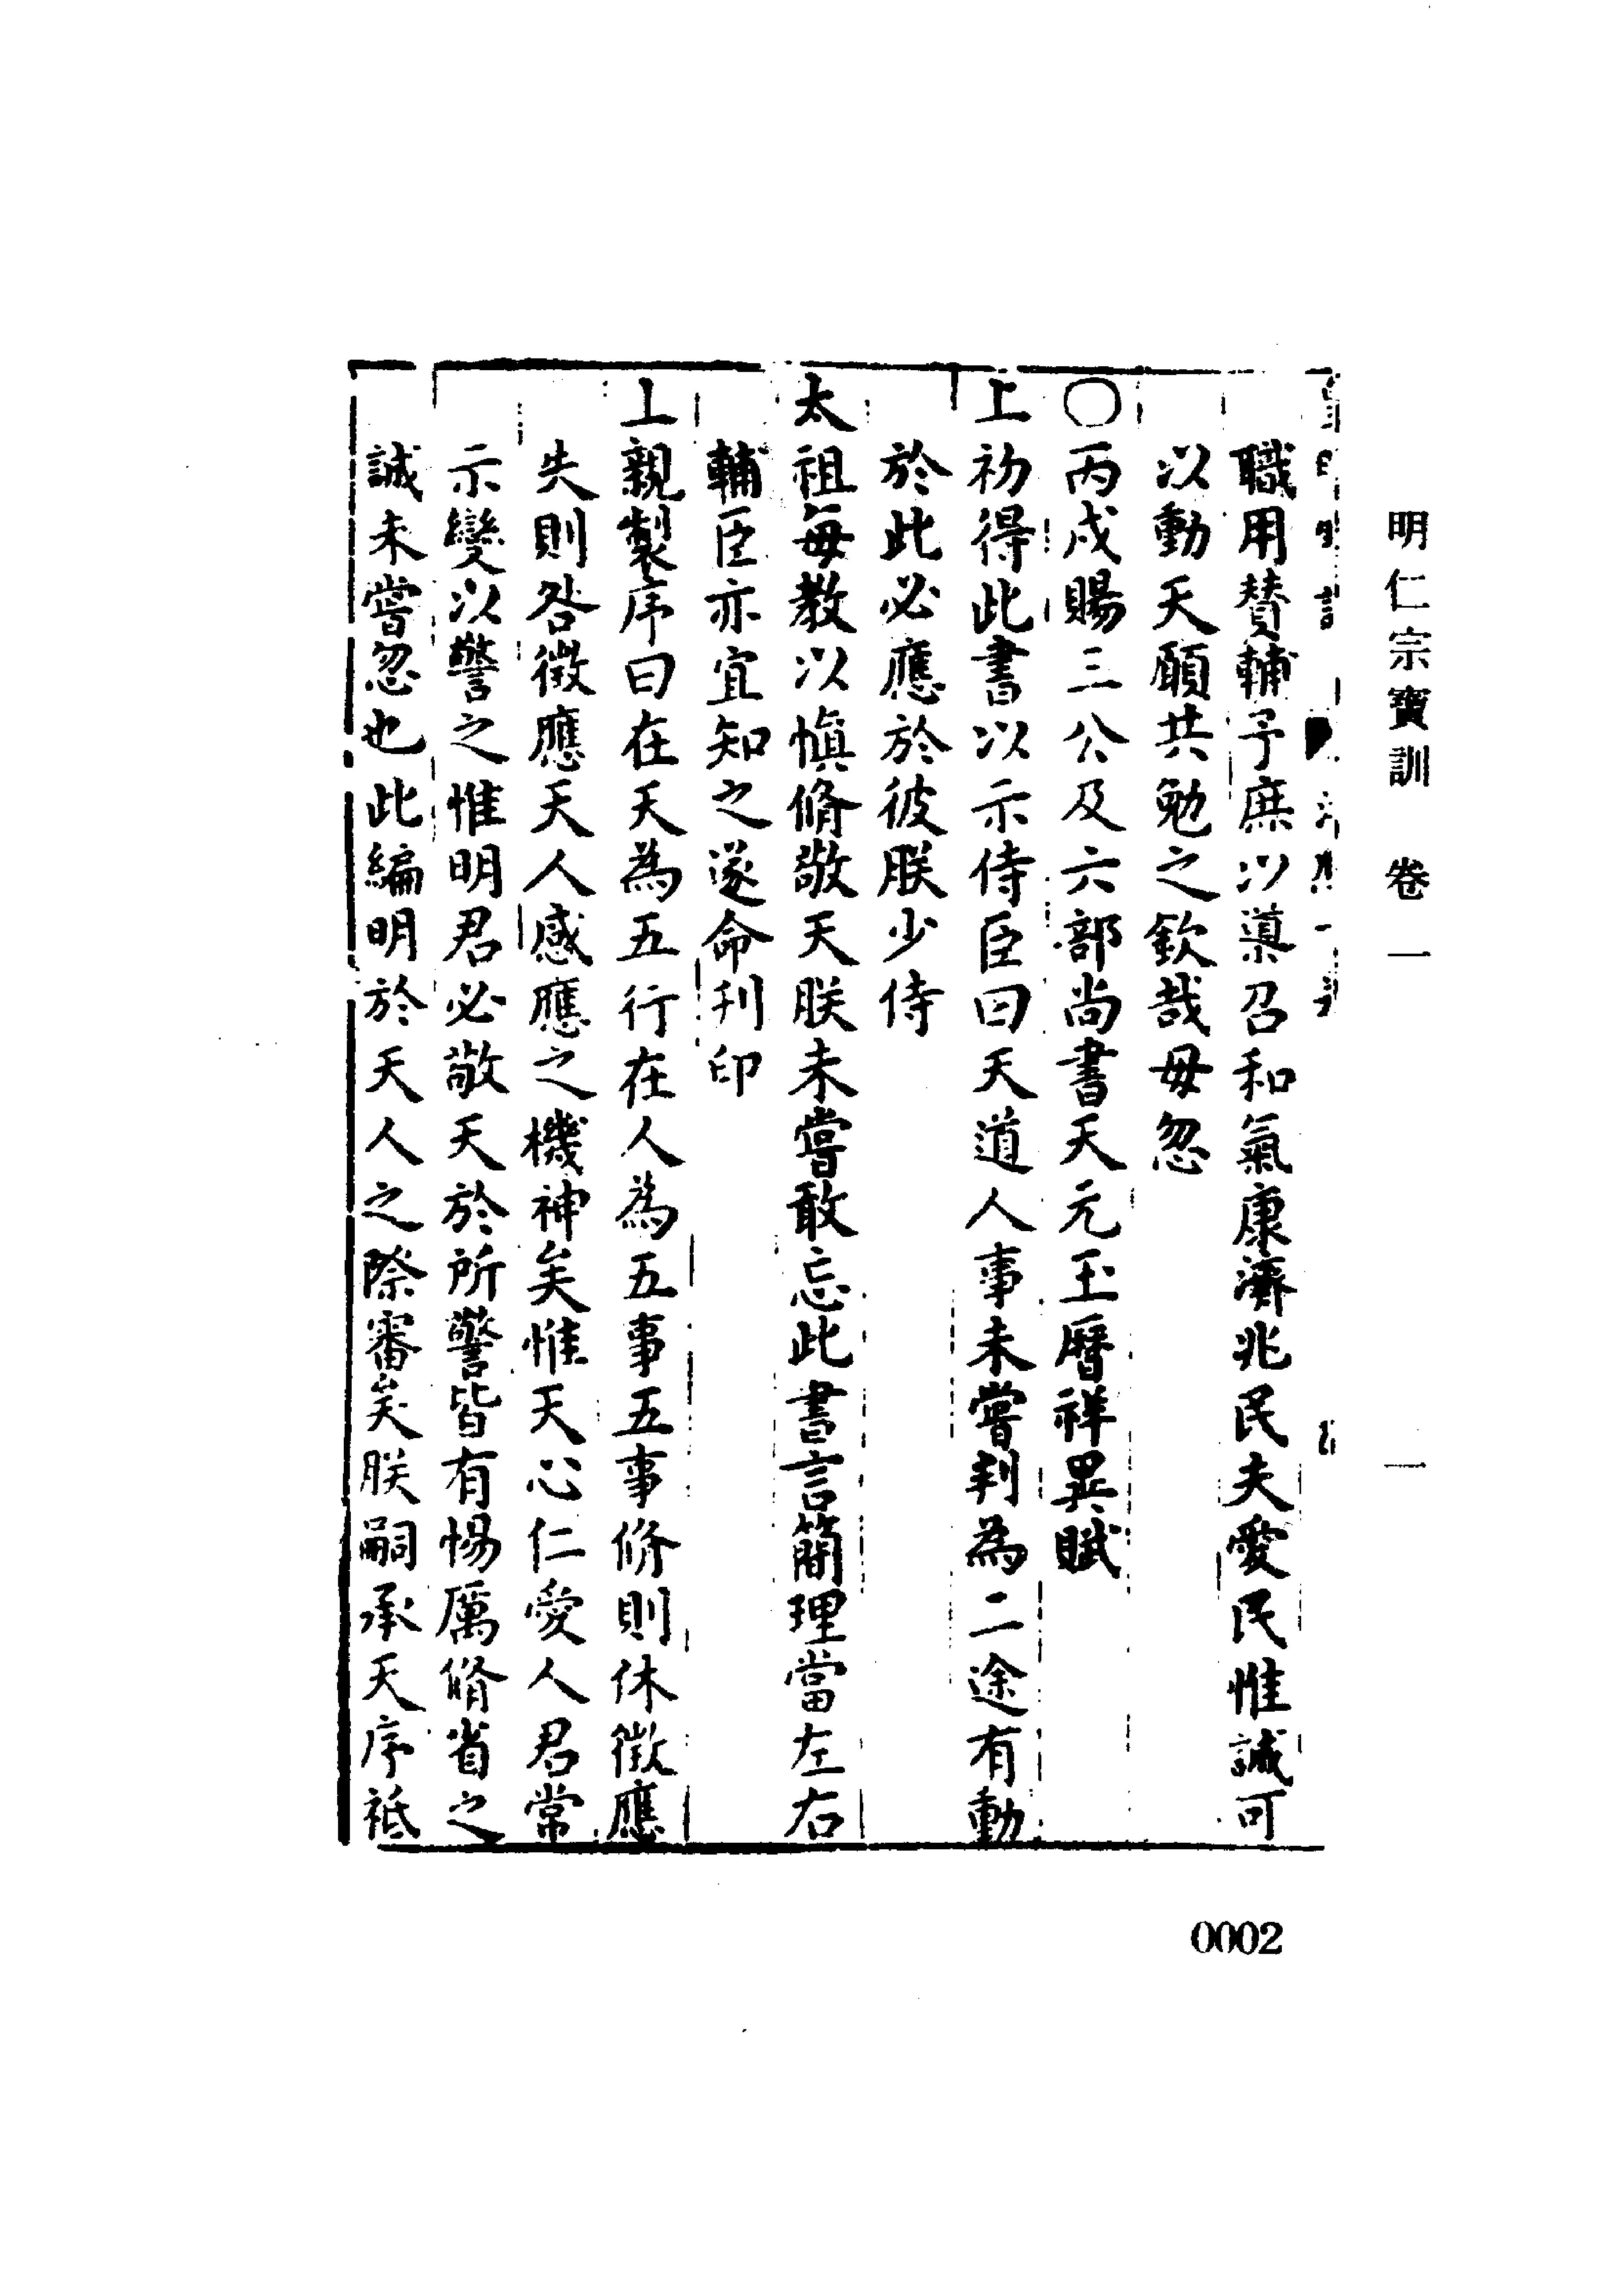 明仁宗寶訓 卷一 一
職用賛輔予庶以導召和氣康濟兆民夫愛民惟誠可
以動天願共勉之欽哉毋忽
〇丙戍賜三公及六部尚書天元玉曆祥異賦
上初得此書以示侍臣曰天道人事未嘗判為二途有動
於此必應於彼朕少侍
太祖每教以愼脩敬天朕未嘗敢忘此書言簡理當左右
輔臣亦宜知之遂命刊印
上親製序曰在天為五行在人為五事五事修則休徵應
失則咎徵應天人感應之機神矣惟天心仁愛人君常
示變以警之惟明君必敬天於所警皆有惕厲脩省之
誠未嘗忽也此編明於天人之際審矣朕嗣承天序祗
0002